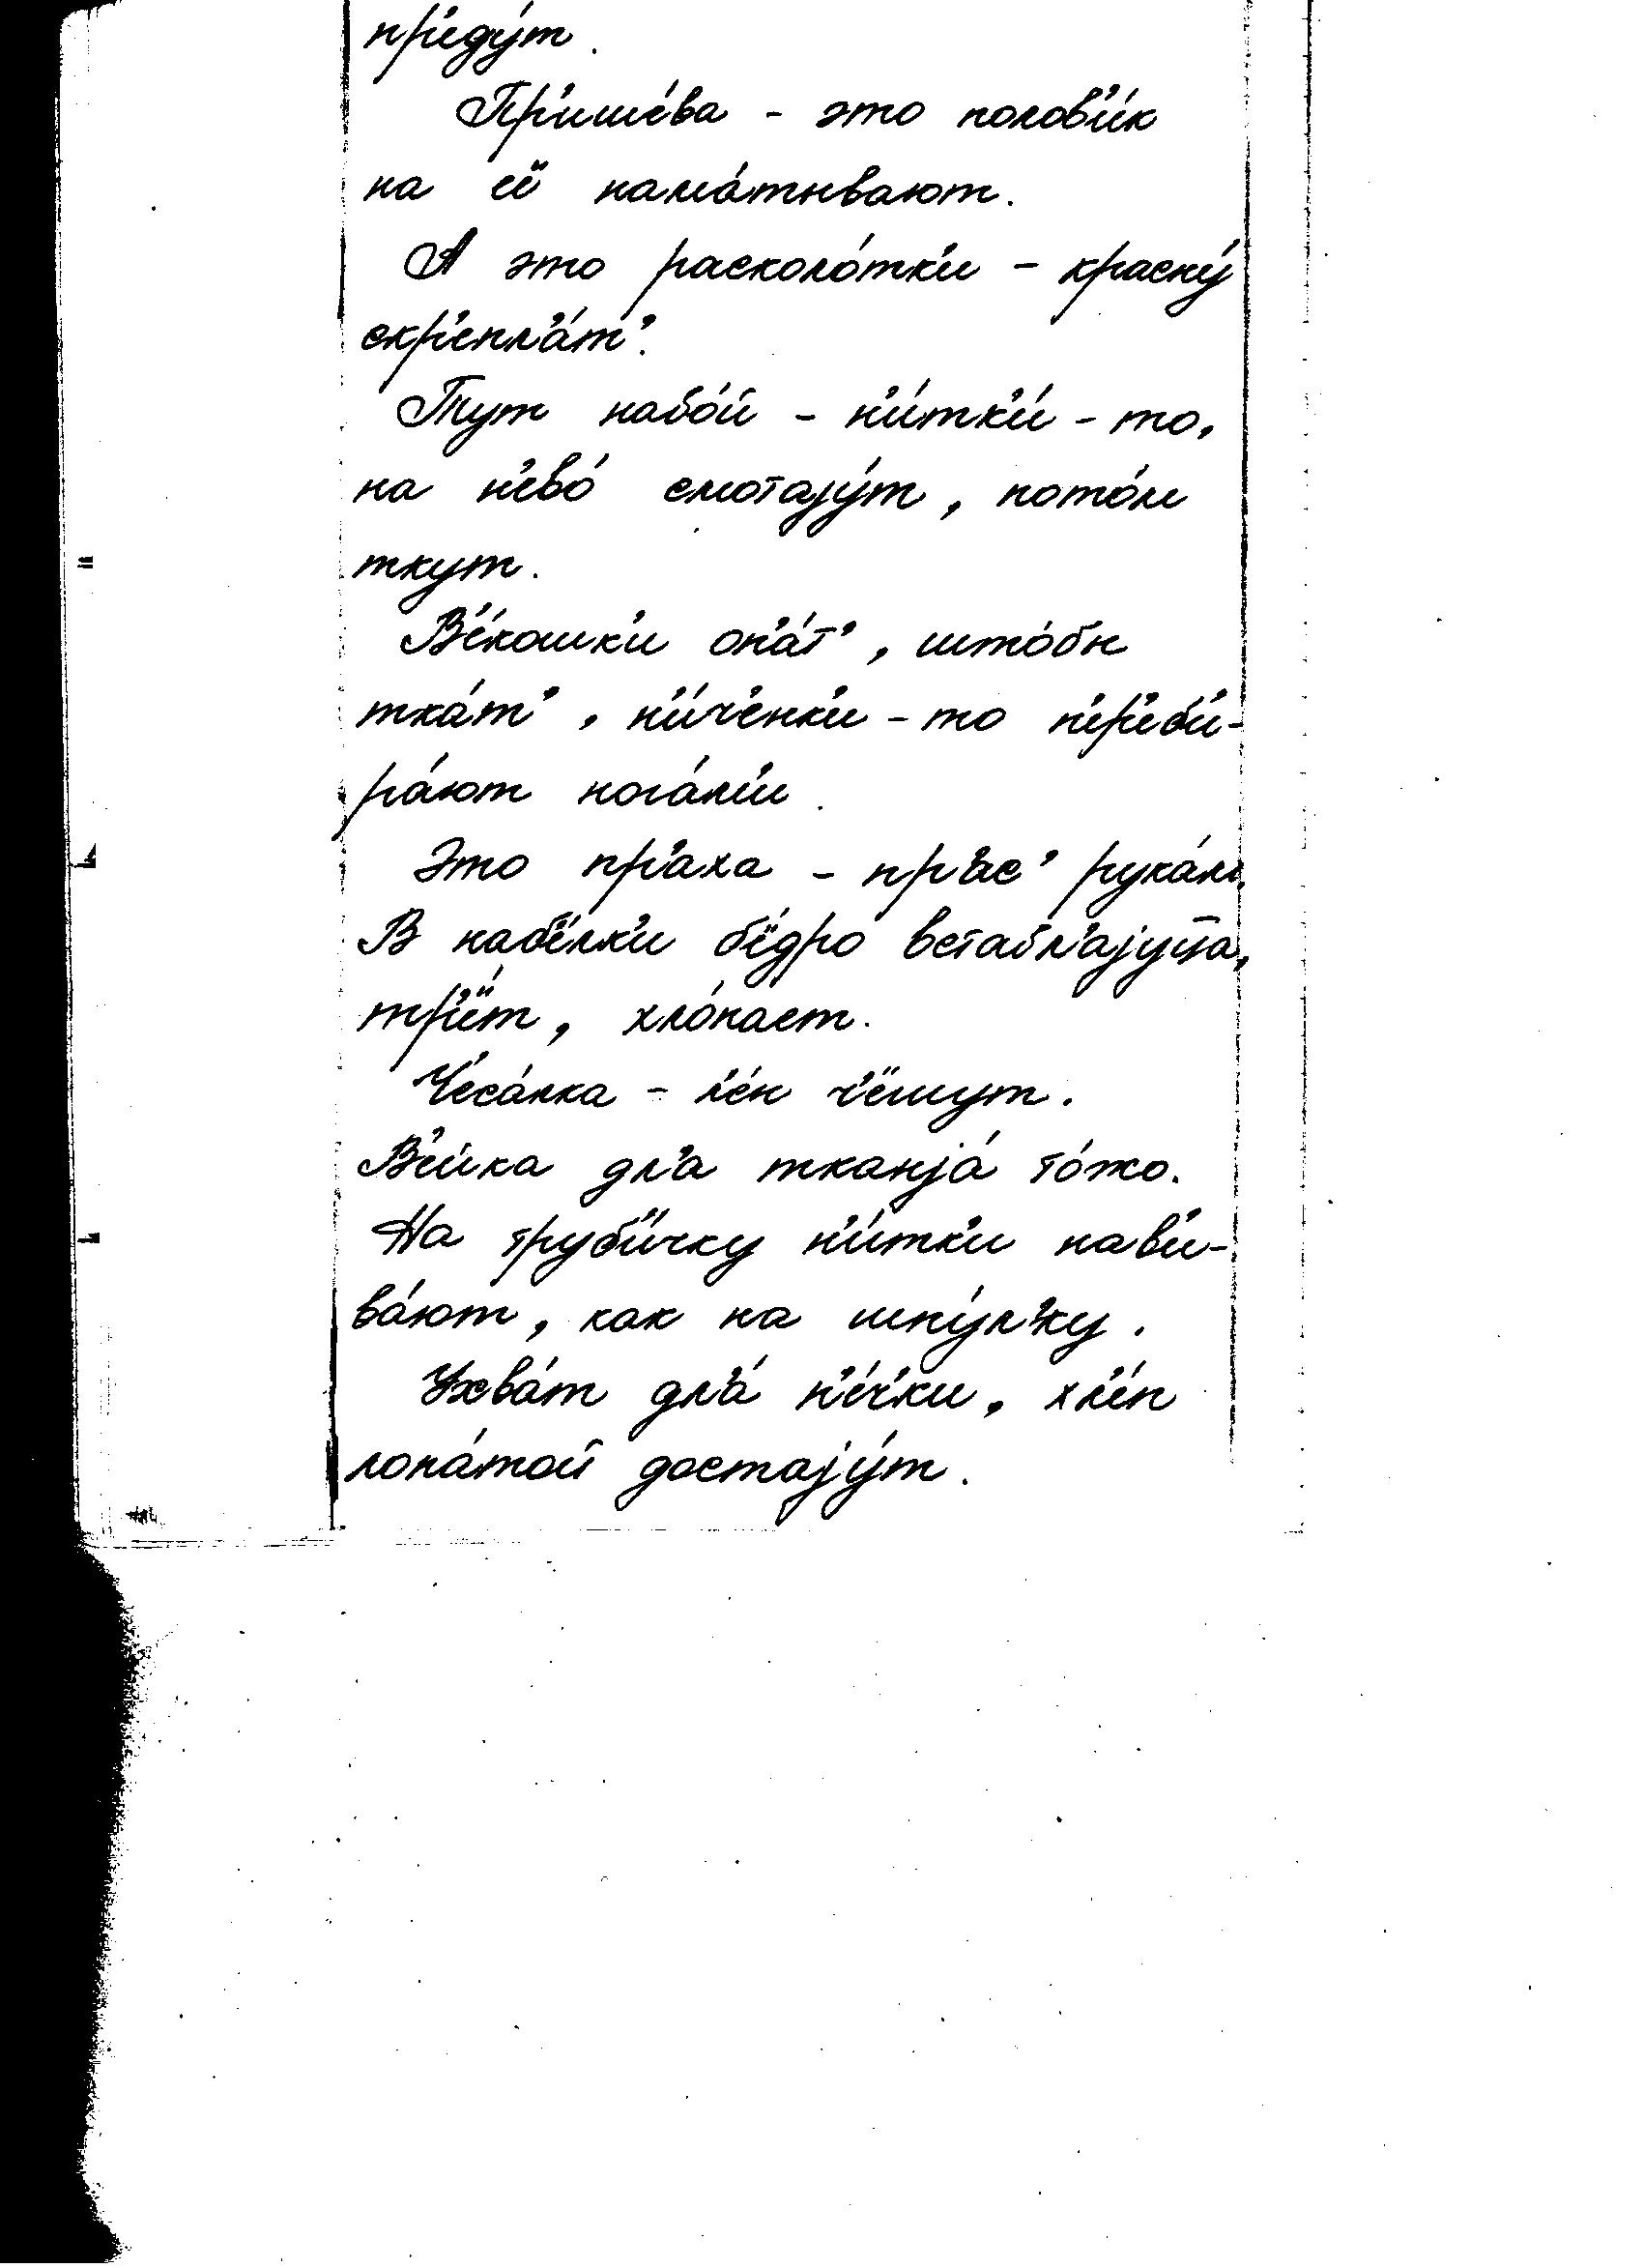 пр'иду́т.
Пр'ише́ва - это полов'и́к
на её нама́тывают.
А это расколо́тк'и - красну́
скр'епл'а́т'.
Тут набо́й - н'и́тк'и́ - то,
на н'ево́ смотају́т, пото́м
ткут.
В'е́кошк'и оп'а́т', што́бы
тка́т', н'и́ч'енк'и - то п'ер'еб'и-
ра́ют нога́м'и.
Это пр'аха - пр'ас' рука́м.
В наб'е́лк'и б'ёдро встабл'ајуц̄а,
тр'ёт, хло́пает.
Ч'еса́лка - л'е́н ч'ёшут.
В'е́йка дл'а тканја́ то́жо.
На труб'и́чку н'и́тк'и нав'и-
ва́ют, как на шпу́л'ку.
Ухва́т дл'а́ п'е́ч'ки, хл'е́п
лопа́той достају́т.